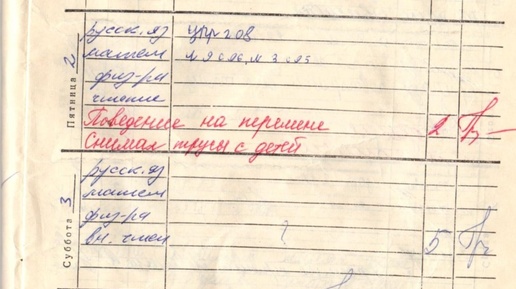 Пятница 2
русск. яз упр 208
матем
физ-ра
чтение
Поведение на перемене 2
Снимал трусы с детей
Суббота 3
русск. яз
матем
физ-ра
вн. чтен ? 5